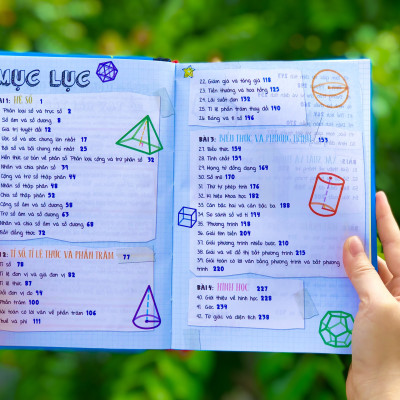 MỤC LỤC
BÀI 1: HỆ SỐ 1
Phân loại số và trục số 2
Số âm và số dương 8
Giá trị tuyệt đối 12
Ước số và ước chung lớn nhất 17
Bội số và bội chung nhỏ nhất 25
Kiến thức cơ bản về phân số: Phân loại, cộng và trừ phân số 32
Nhân và chia phân số 39
Cộng và trừ số thập phân 44
Nhân số thập phân 48
Chia số thập phân 52
Cộng số âm và số dương 58
Trừ số âm và số dương 63
Nhân và chia số âm và số dương 68
Bất đẳng thức 72
2: TỈ SỐ, TỈ LỆ THỨC VÀ PHẦN TRĂM 77
Tỉ số 78
Tỉ lệ đơn vị và giá đơn vị 82
Tỉ lệ thức 87
đổi đơn vị đo 94
Phần trăm 100
toán có lời văn về phần trăm 106
Thuế và phí 111
22. Giảm giá và tăng giá 118
23. Tiền thưởng và hoa hồng 125
24. Lãi suất đơn 132
25. Tỉ lệ phần trăm thay đổi 140
26. Bảng và tỉ số 146
BÀI 3: BIỂU THỨC VÀ PHƯƠNG TRÌNH 153
27. Biểu thức 154
28. Tính chất 159
29. Hạng tử đồng dạng 165
30. Số mũ 170
31. Thứ tự phép tính 176
32. Kí hiệu khoa học 182
33. Căn bậc hai và căn bậc ba 188
34. So sánh số vô tỉ 194
35. Phương trình 198
36. Giải tìm biến 204
37. Giải phương trình nhiều bước 210
38. Giải và vẽ đồ thị bất phương trình 215
39. Giải toán có lời văn bằng phương trình và bất phương
trình 220
BÀI 4: HÌNH HỌC 227
40. Giới thiệu về hình học 228
41. Góc 234
42. Tứ giác và diện tích 238